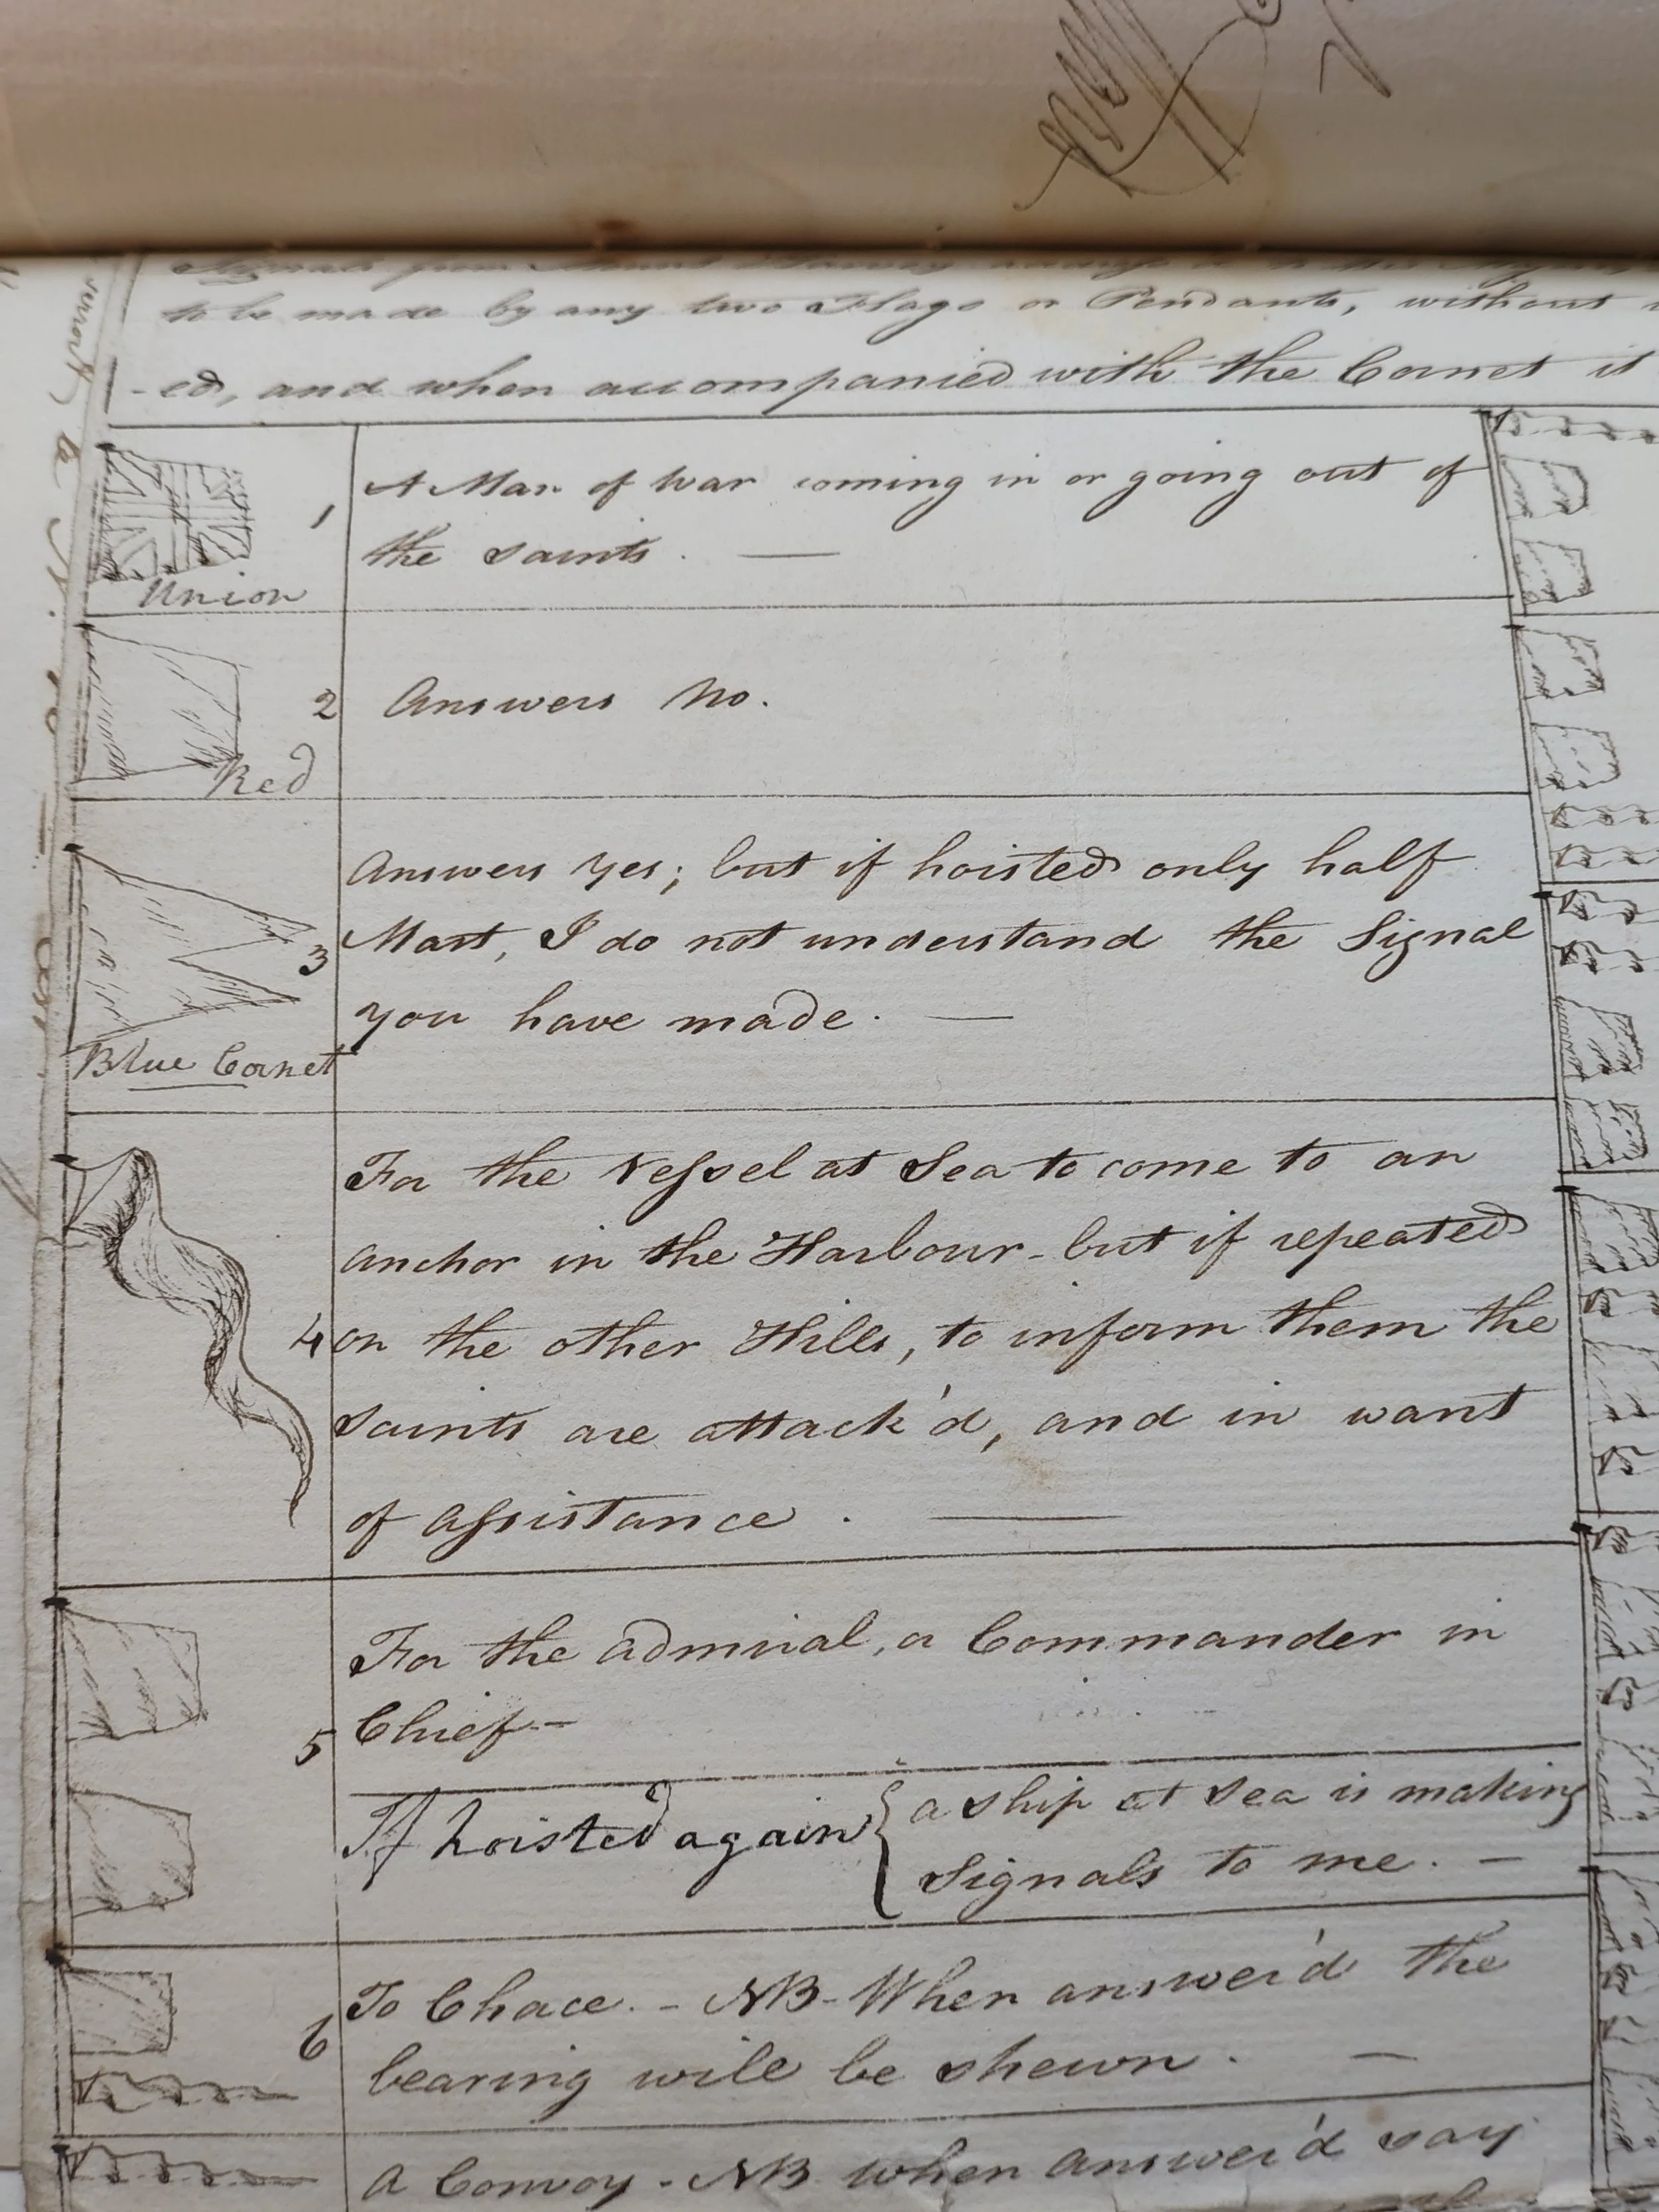 Signals from Mount
to be made by any two Flags or Pendants, without
-ed, and when accompanied with the Cornet it
Union
1
A Man of War coming in or going out of
the Saints. —
Red
2
Answers No.
Blue Cornet
3
Answers Yes; but if hoisted only half
Mast, I do not understand the Signal
you have made. —
4
For the Vessel at Sea to come to an
anchor in the Harbour - but if repeated
on the other Hills, to inform them the
Saints are attack'd, and in want
of assistance. —
5
For the Admiral, or Commander in
Chief -
If hoisted again { a Ship at Sea is making
Signals to me. -
6
To Chace. - NB - When answer'd the
bearing will be shewn. —
A Convoy - NB when answer'd say